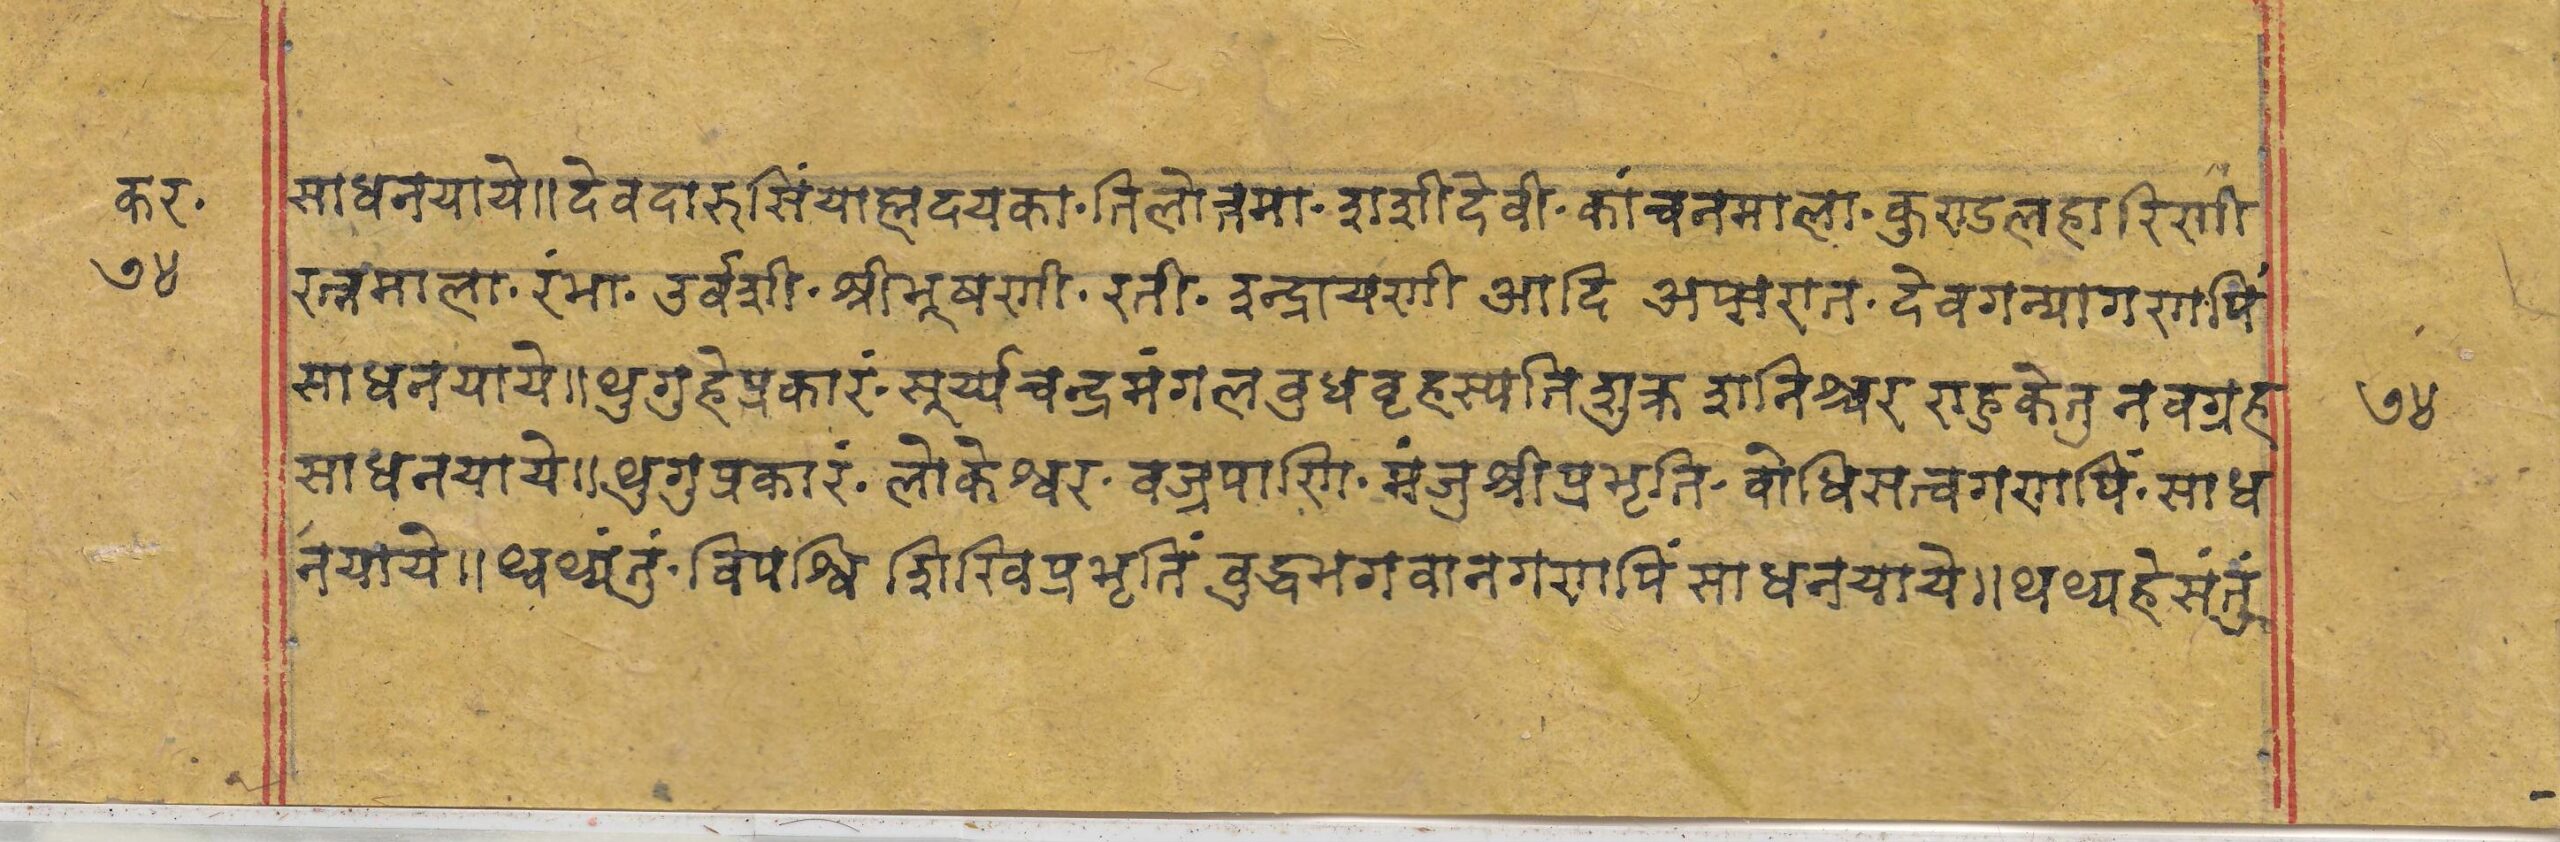 कर.
७४
साधनयाये॥ देवदारुसिंयाह्लदयका. तिलोत्तमा. शशीदेवी. कांचनमाला. कुण्डलहारिणी
रत्नमाला. रंभा. उर्वशी. श्रीभूषणी. रती. इन्द्रायणी आदि अप्सरात. देवगन्यागणपिं
साधनयाये॥ थुगुहेप्रकारं. सूर्य्यचन्द्रमंगलवुधवृहस्पतिशुक्रशनिश्चर राहुकेतु नवग्रह
७४
साधनयाये॥ थुगुप्रकारं. लोकेश्वर. वज्रपाणि. मंजुश्रीप्रभृति. वोधिसत्वगणपिं. साध
नयाये॥ थ्वथ्यंतुं. विपश्वि शिखिप्रभृतिं वुद्धभगवानगणपिं साधनयाये॥ थथ्यहेसंतुं